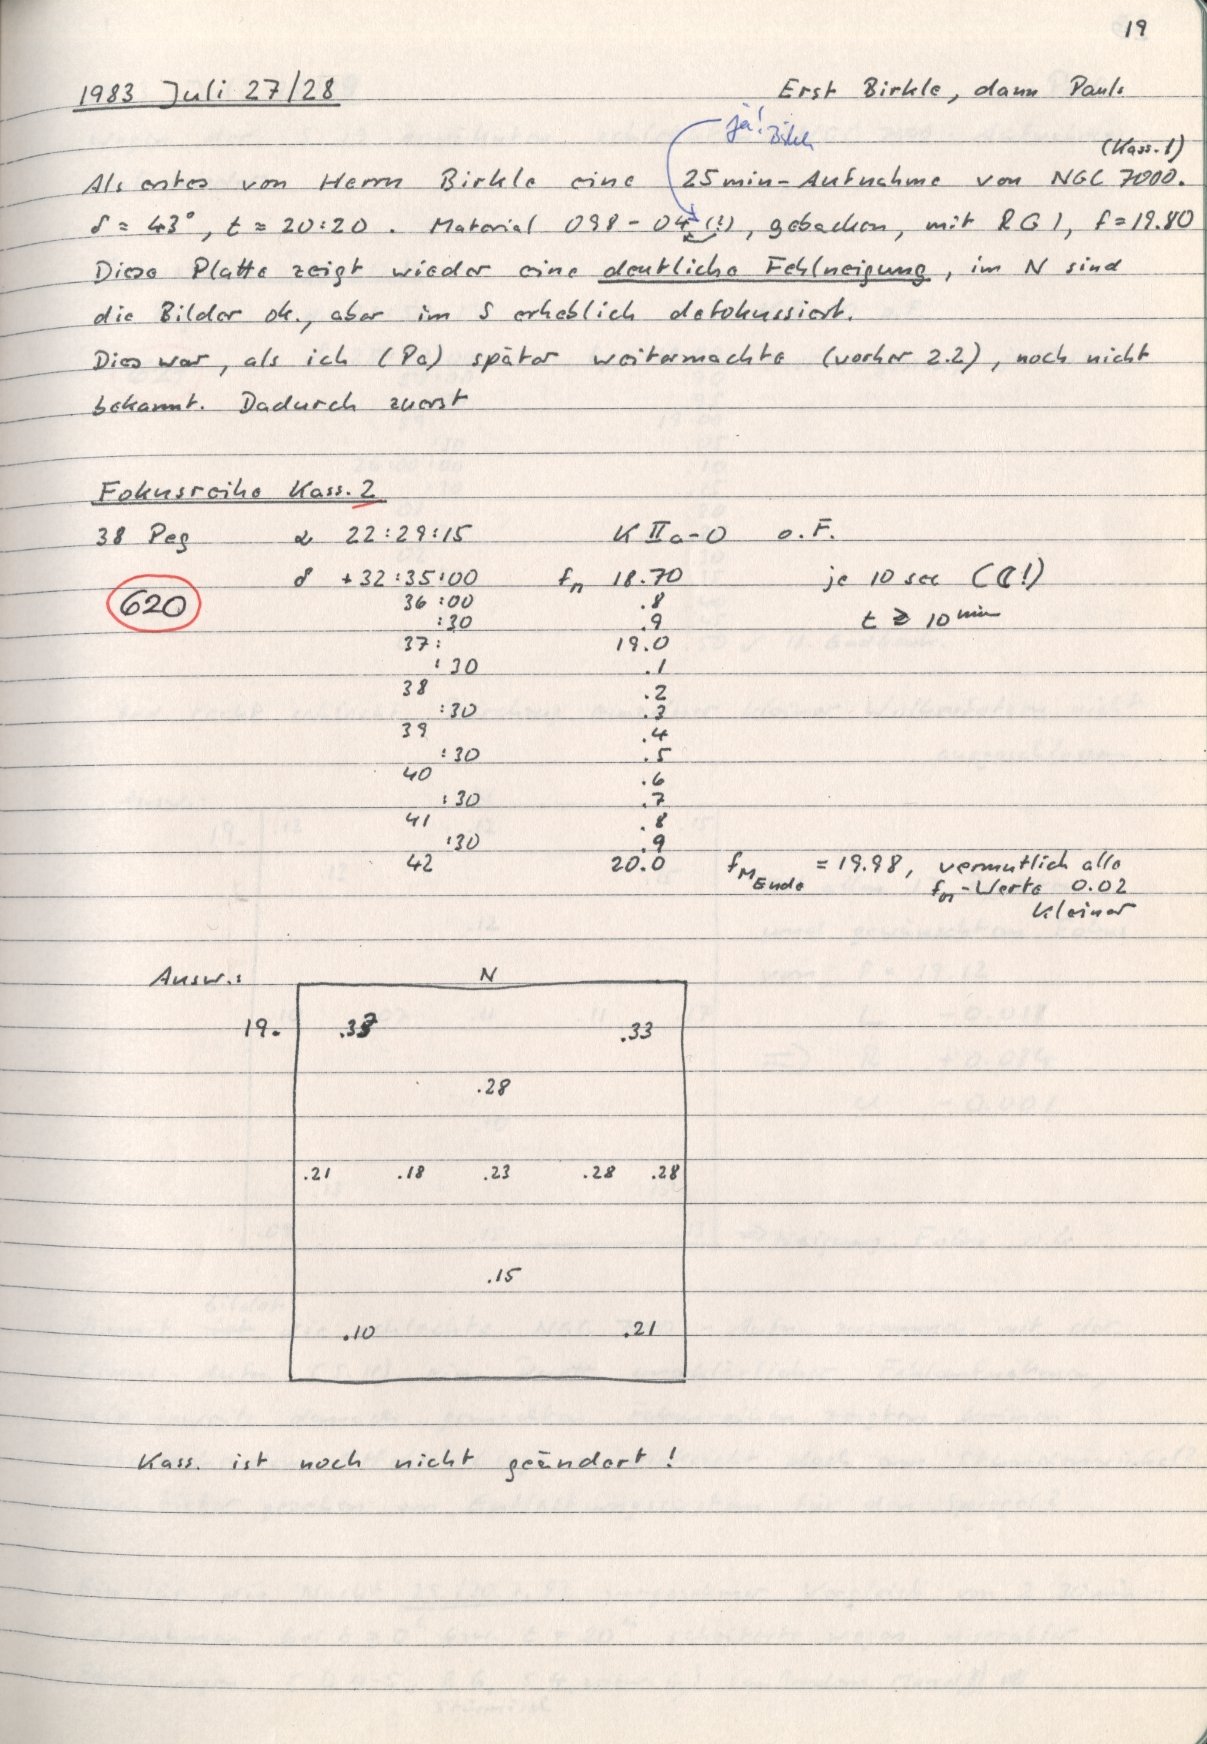 19
1983 Juli 27/28 Erst Birkle, dann Pauls
ja! Birkle
(Kass. 1)
Als erstes von Herrn Birkle eine 25 min-Aufnahme von NGC 7000.
δ = 43°, t = 20:20. Material 098-04 (!), gebacken, mit RG1, f=19.80
Diese Platte zeigt wieder eine deutliche Fehlneigung, im N sind
die Bilder ok., aber im S erheblich defokussiert.
Dies war, als ich (Pa) später weitermachte (vorher 2.2), noch nicht
bekannt. Dadurch zuerst
Fokusreihe Kass. 2
38 Peg α 22:29:15 K IIa-O o.F.
620 δ +32:35:00 fn 18.70 je 10 sec (☾!)
36:00 .8 t ≥ 10 min
:30 .9
37: 19.0
:30 .1
38 .2
:30 .3
39 .4
:30 .5
40 .6
:30 .7
41 .8
:30 .9
42 20.0 fM Ende = 19.98, vermutlich alle
fn-Werte 0.02
kleiner
Ausw.: N
19. .37 .33
.28
.21 .18 .23 .28 .28
.15
.10 .21
Kass. ist noch nicht geändert!